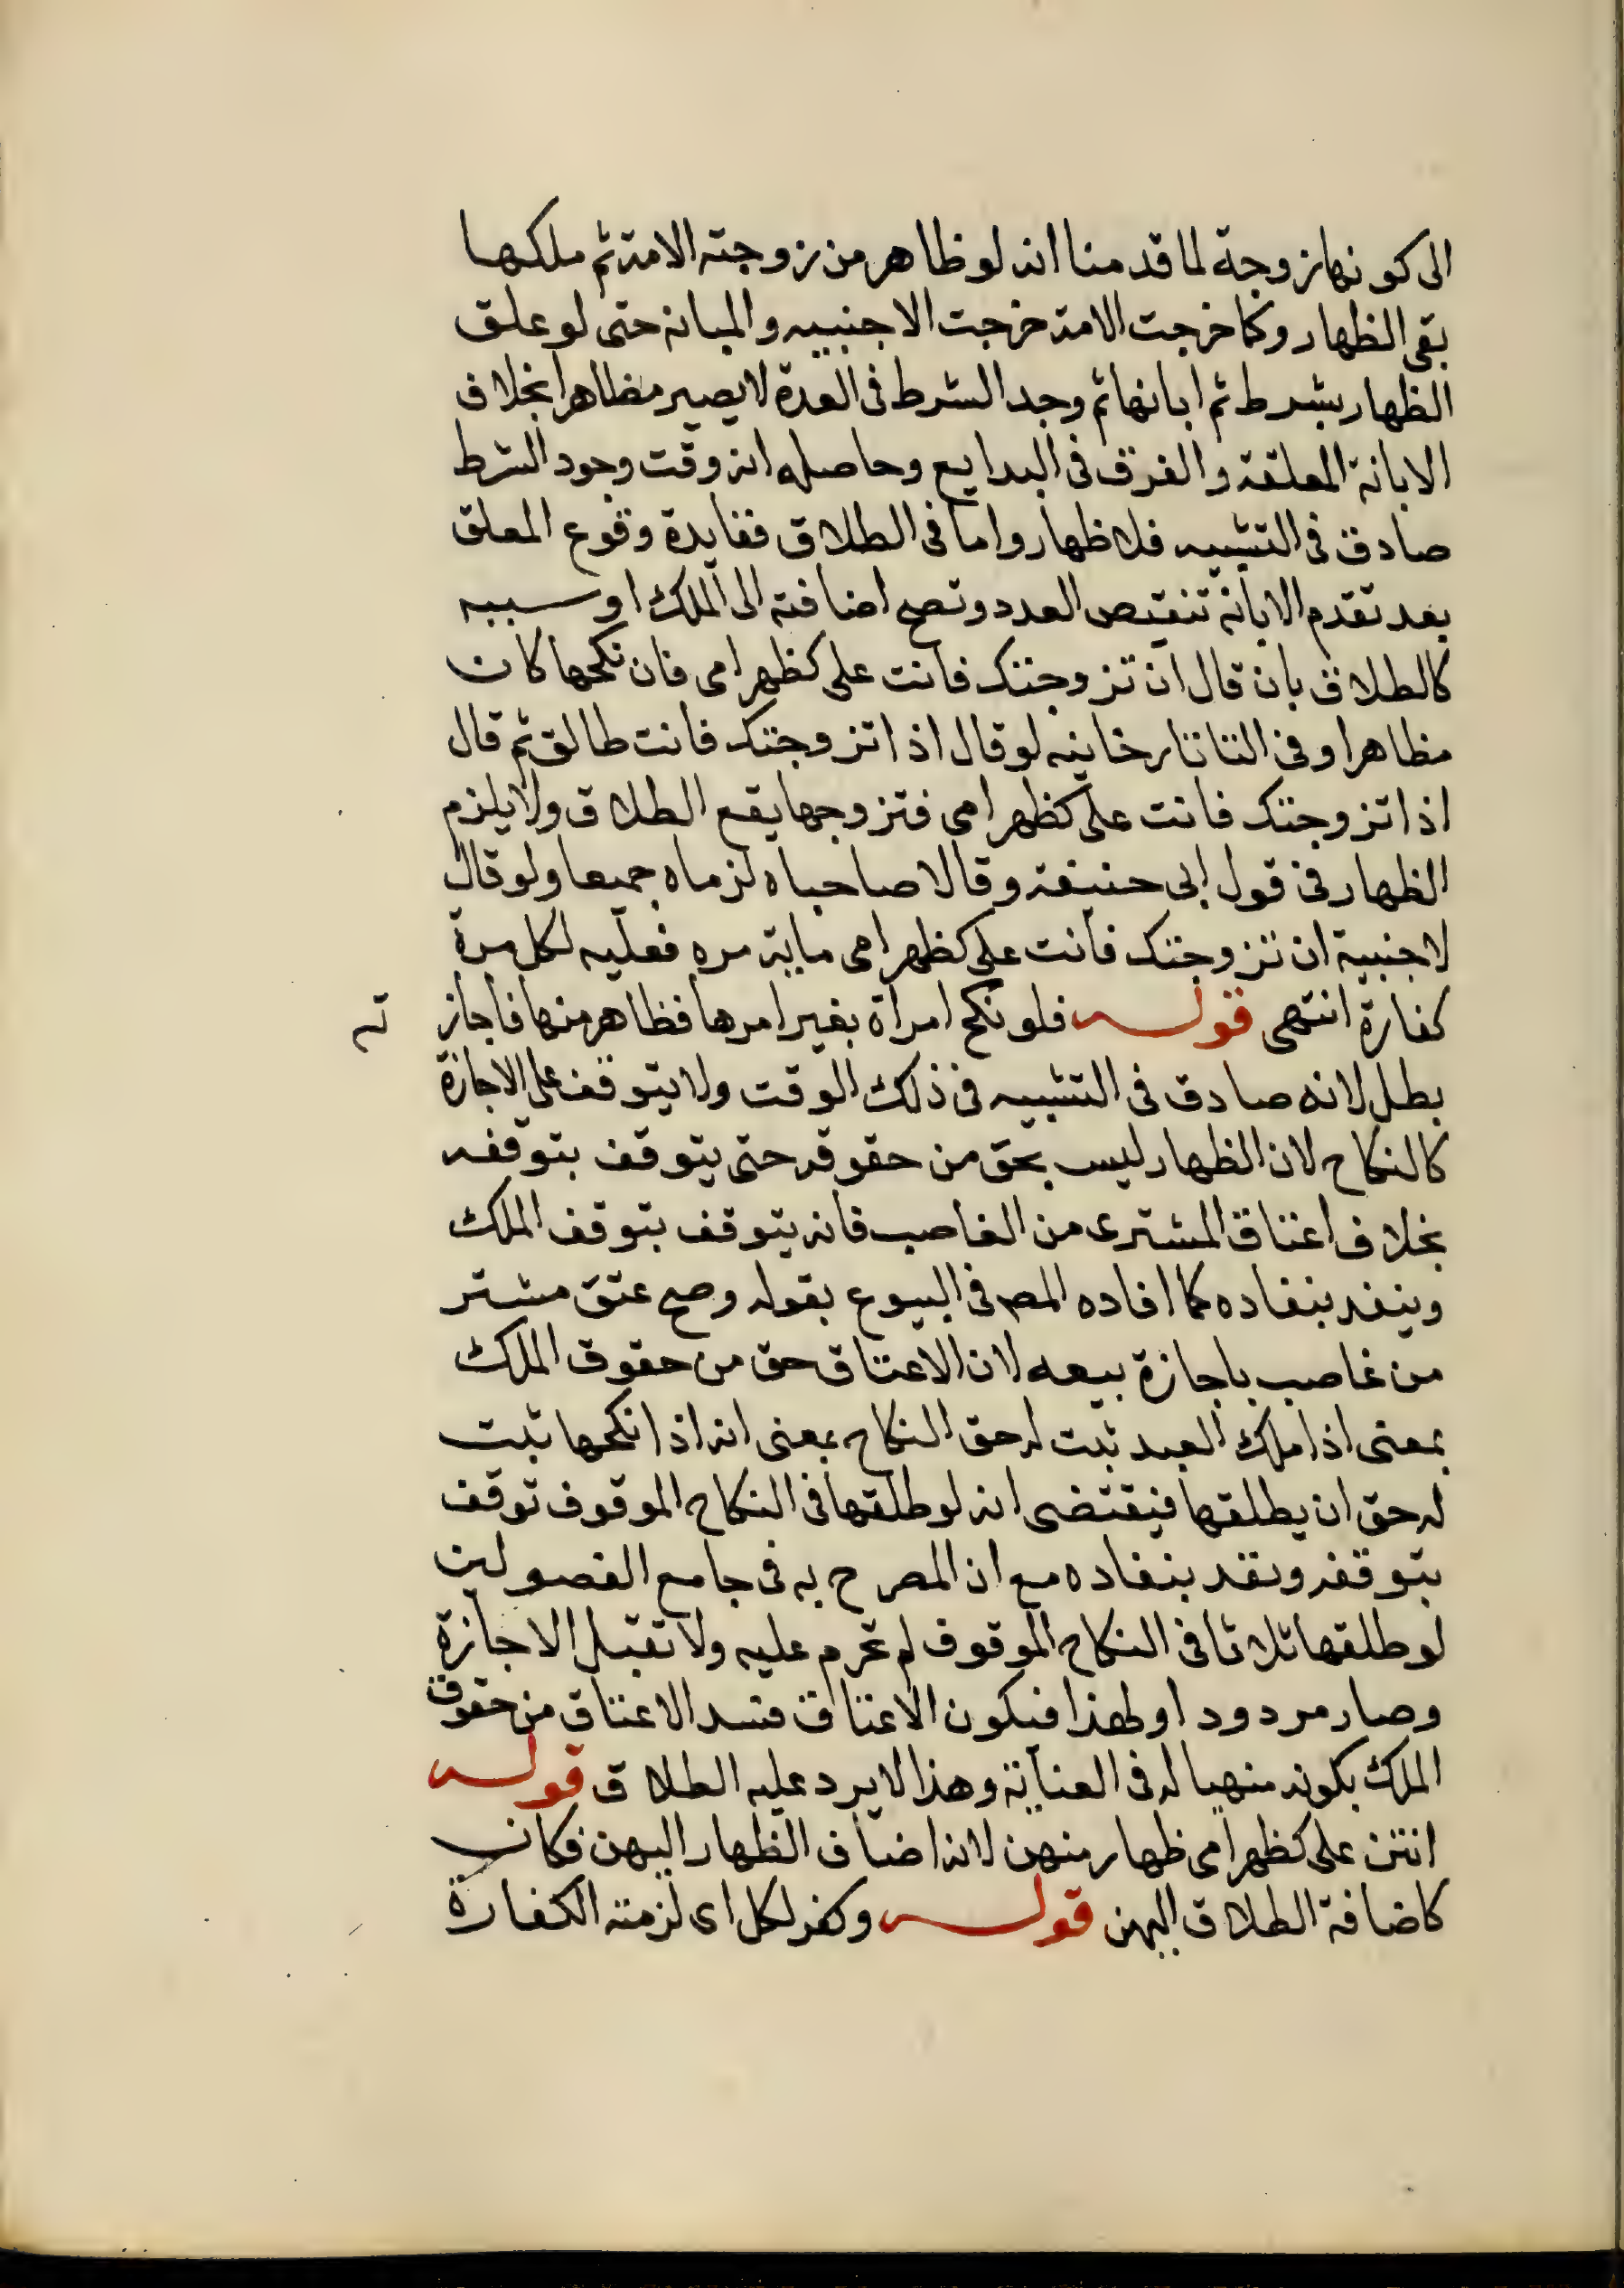 الى كونها زوجة لما قدمنا انه لو ظاهر من زوجته الامة ثم ملكها
بقى الظهار وكما خرجت الامة خرجت الاجنبيه والمبانه حتى لو علق
الظهار بشرط ثم ابانها ثم وجد الشرط فى العدة لا يصير مظاهرا بخلاف
الابانة المعلقة والفرق فى البدايع وحاصله انه وقت وجود الشرط
صادق فى التشبيه فلا ظهار واما فى الطلاق ففايدة وقوع المعلق
بعد تقدم الابانة تنقيص العدد وتصح اضافته الى الملك او سببه
كالطلاق بان قال ان تزوجتك فانت على كظهر امى فان نكحها كان
مظاهرا وفى التتاتارخانيه لو قال اذا تزوجتك فانت طالق ثم قال
اذا تزوجتك فانت على كظهر امى فتزوجها يقع الطلاق ولا يلزم
الظهار فى قول ابى حنيفة وقالا صاحباه لزماه جميعا ولو قال
لاجنبية ان تزوجتك فانت على كظهر امى ماية مره فعليه لكل مرة
كفارة انتهى قوله فلو نكح امراة بغير امرها فظاهر منها فاجازته
بطل لانه صادق فى التشبيه فى ذلك الوقت ولا يتوقف على الاجازة
كالنكاح لان الظهار ليس بحق من حقوقه حتى يتوقف بتوقفه
بخلاف اعتاق المشترى من الغاصب فانه يتوقف بتوقف الملك
وينفد بنفاده كما افاده المص فى البيوع بقوله وصح عتق مشتر
من غاصب باجازة بيعه لان الاعتاق حق من حقوق الملك
بمعنى اذا ملك العبد ثبت له حق النكاح بمعنى انه اذا نكحها ثبت
له حق ان يطلقها فيقتضى انه لو طلقها فى النكاح الموقوف توقف
بتوقفه ونفد بنفاده مع ان المصرح به فى جامع الفصولين
لو طلقها ثلاثا فى النكاح الموقوف لم تحرم عليه ولا تقبل الاجازة
وصار مردودا ولهذا فيكون الاعتاق فسد الاعتاق من حقوق
الملك بكونه منهيا له فى العناية وهذا لا يرد عليه الطلاق قوله
انتن على كظهر امى ظهار منهن لانه اضاف الظهار اليهن فكان
كاضافة الطلاق اليهن قوله وكفر لكل اى لزمته الكفارة